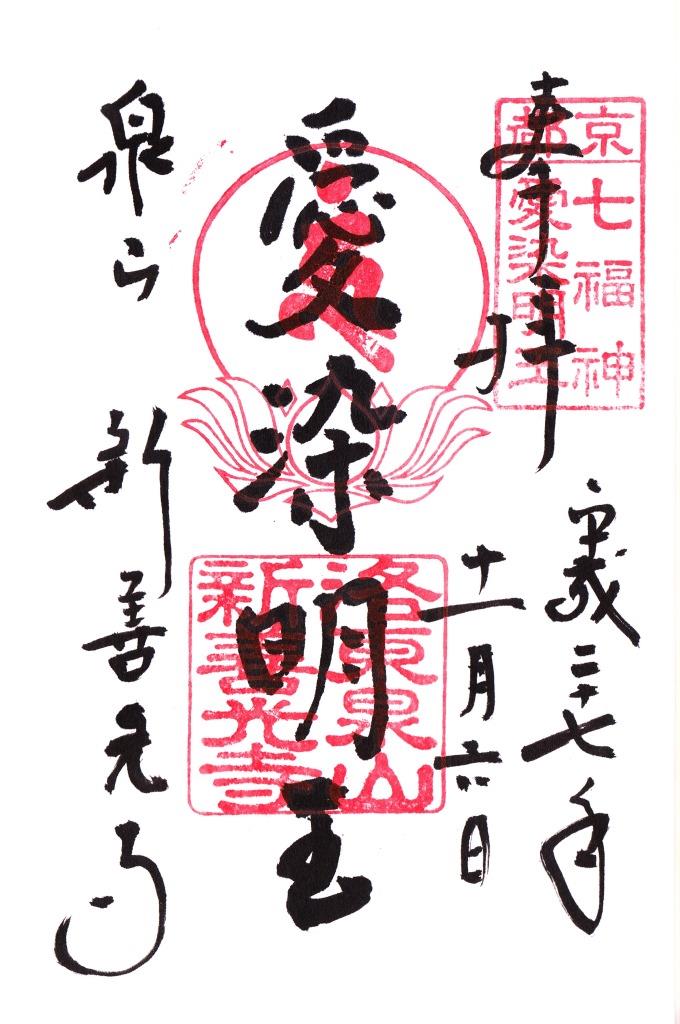 奉拝
京都
七福神
愛染明王
平成二十七年
十一月六日
愛染明王
洛東泉山
新善光寺
泉山
新善光寺